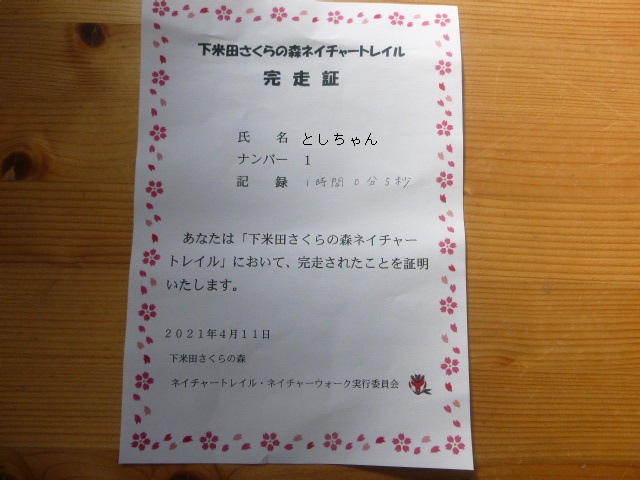 下米田さくらの森ネイチャートレイル
完走証
氏 名 としちゃん
ナンバー 1
記 録 1時間0分5秒
あなたは「下米田さくらの森ネイチャー
トレイル」において、完走されたことを証明
いたします。
2021年4月11日
下米田さくらの森
ネイチャートレイル・ネイチャーウォーク実行委員会